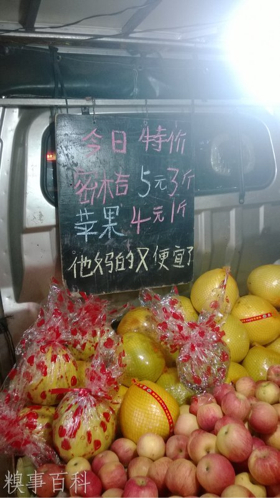 今日特价
密桔5元3斤
苹果4元1斤
他妈的又便宜了
糗事百科